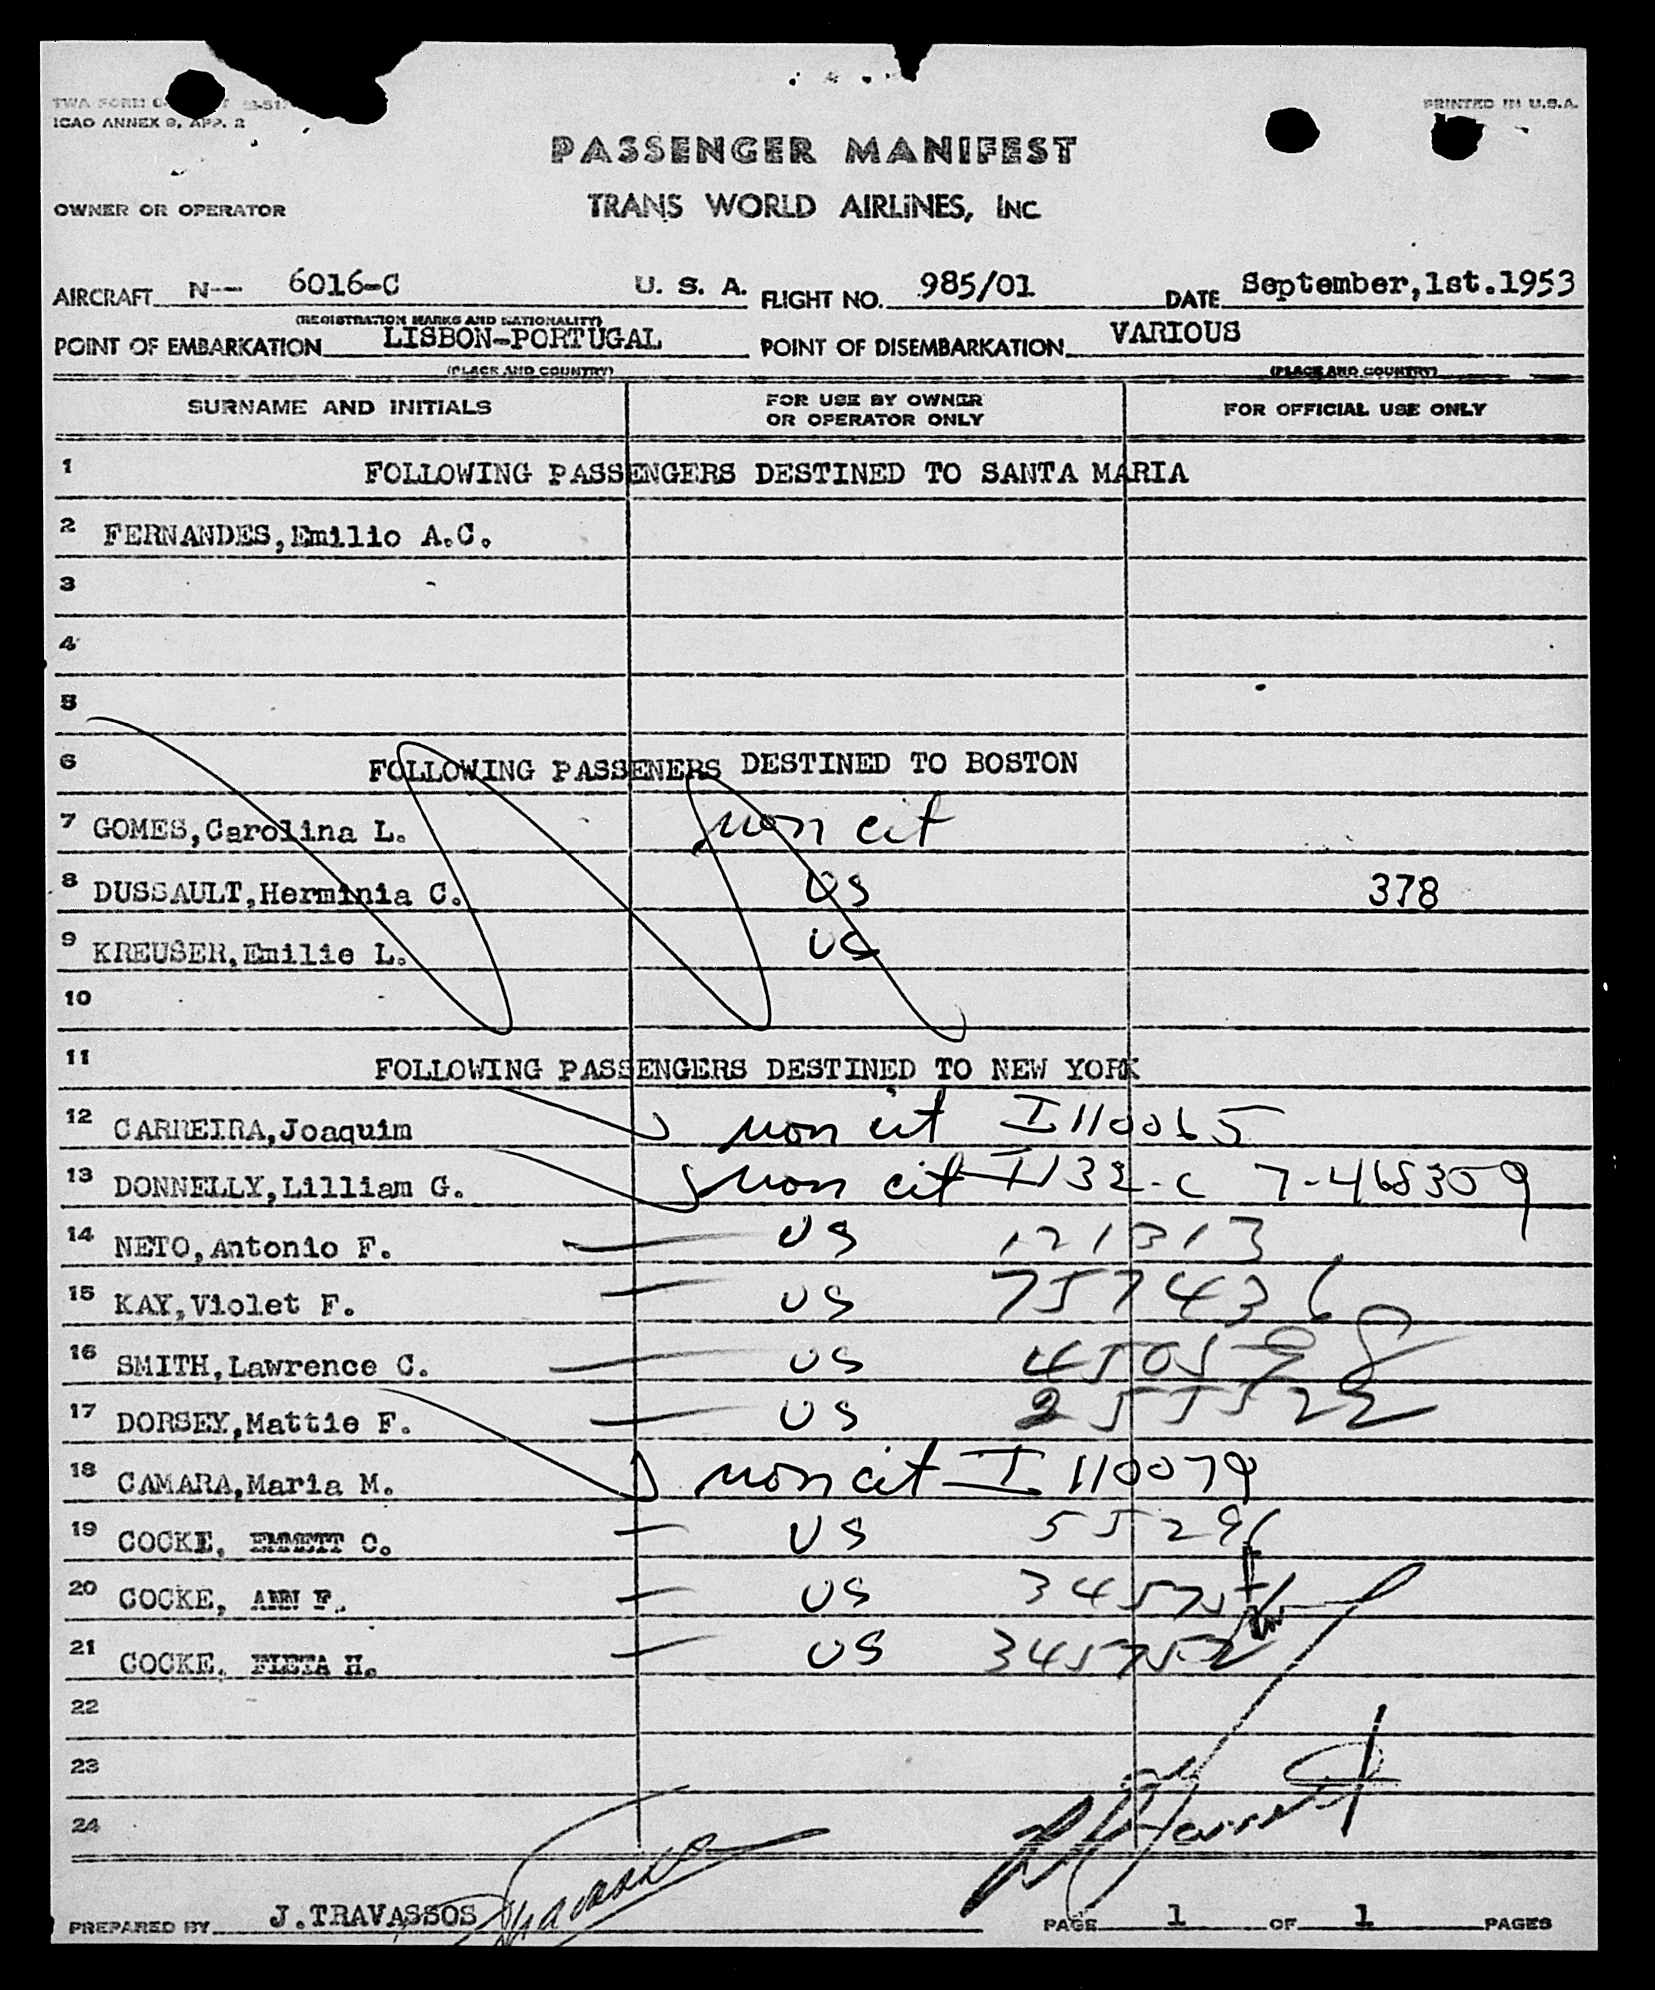 ICAO ANNEX 9, APP. 2
PRINTED IN U.S.A.
PASSENGER MANIFEST
OWNER OR OPERATOR TRANS WORLD AIRLINES, INC
AIRCRAFT N-- 6016-C U. S. A. FLIGHT NO. 985/01 DATE September,1st.1953
(REGISTRATION MARKS AND NATIONALITY)
POINT OF EMBARKATION LISBON-PORTUGAL POINT OF DISEMBARKATION VARIOUS
(PLACE AND COUNTRY) (PLACE AND COUNTRY)
SURNAME AND INITIALS FOR USE BY OWNER OR OPERATOR ONLY FOR OFFICIAL USE ONLY
1 FOLLOWING PASSENGERS DESTINED TO SANTA MARIA
2 FERNANDES,Emilio A.C.
3
4
5
6 FOLLOWING PASSENERS DESTINED TO BOSTON
7 GOMES,Carolina L. non cit
8 DUSSAULT,Herminia C. US 378
9 KREUSER,Emilie L. US
10
11 FOLLOWING PASSENGERS DESTINED TO NEW YORK
12 CARREIRA,Joaquim non cit I110065
13 DONNELLY,Lilliam G. non cit I132-C 7-468309
14 NETO,Antonio F. US 121313
15 KAY,Violet F. US 757436
16 SMITH,Lawrence C. US
17 DORSEY,Mattie F. US 255522
18 CAMARA,Maria M. non cit I 110079
19 COCKE, EMMETT C. US 55296
20 COCKE, ANN F. US
21 COCKE, FLETA H. US 345752
22
23
24
PREPARED BY J.TRAVASSOS PAGE 1 OF 1 PAGES